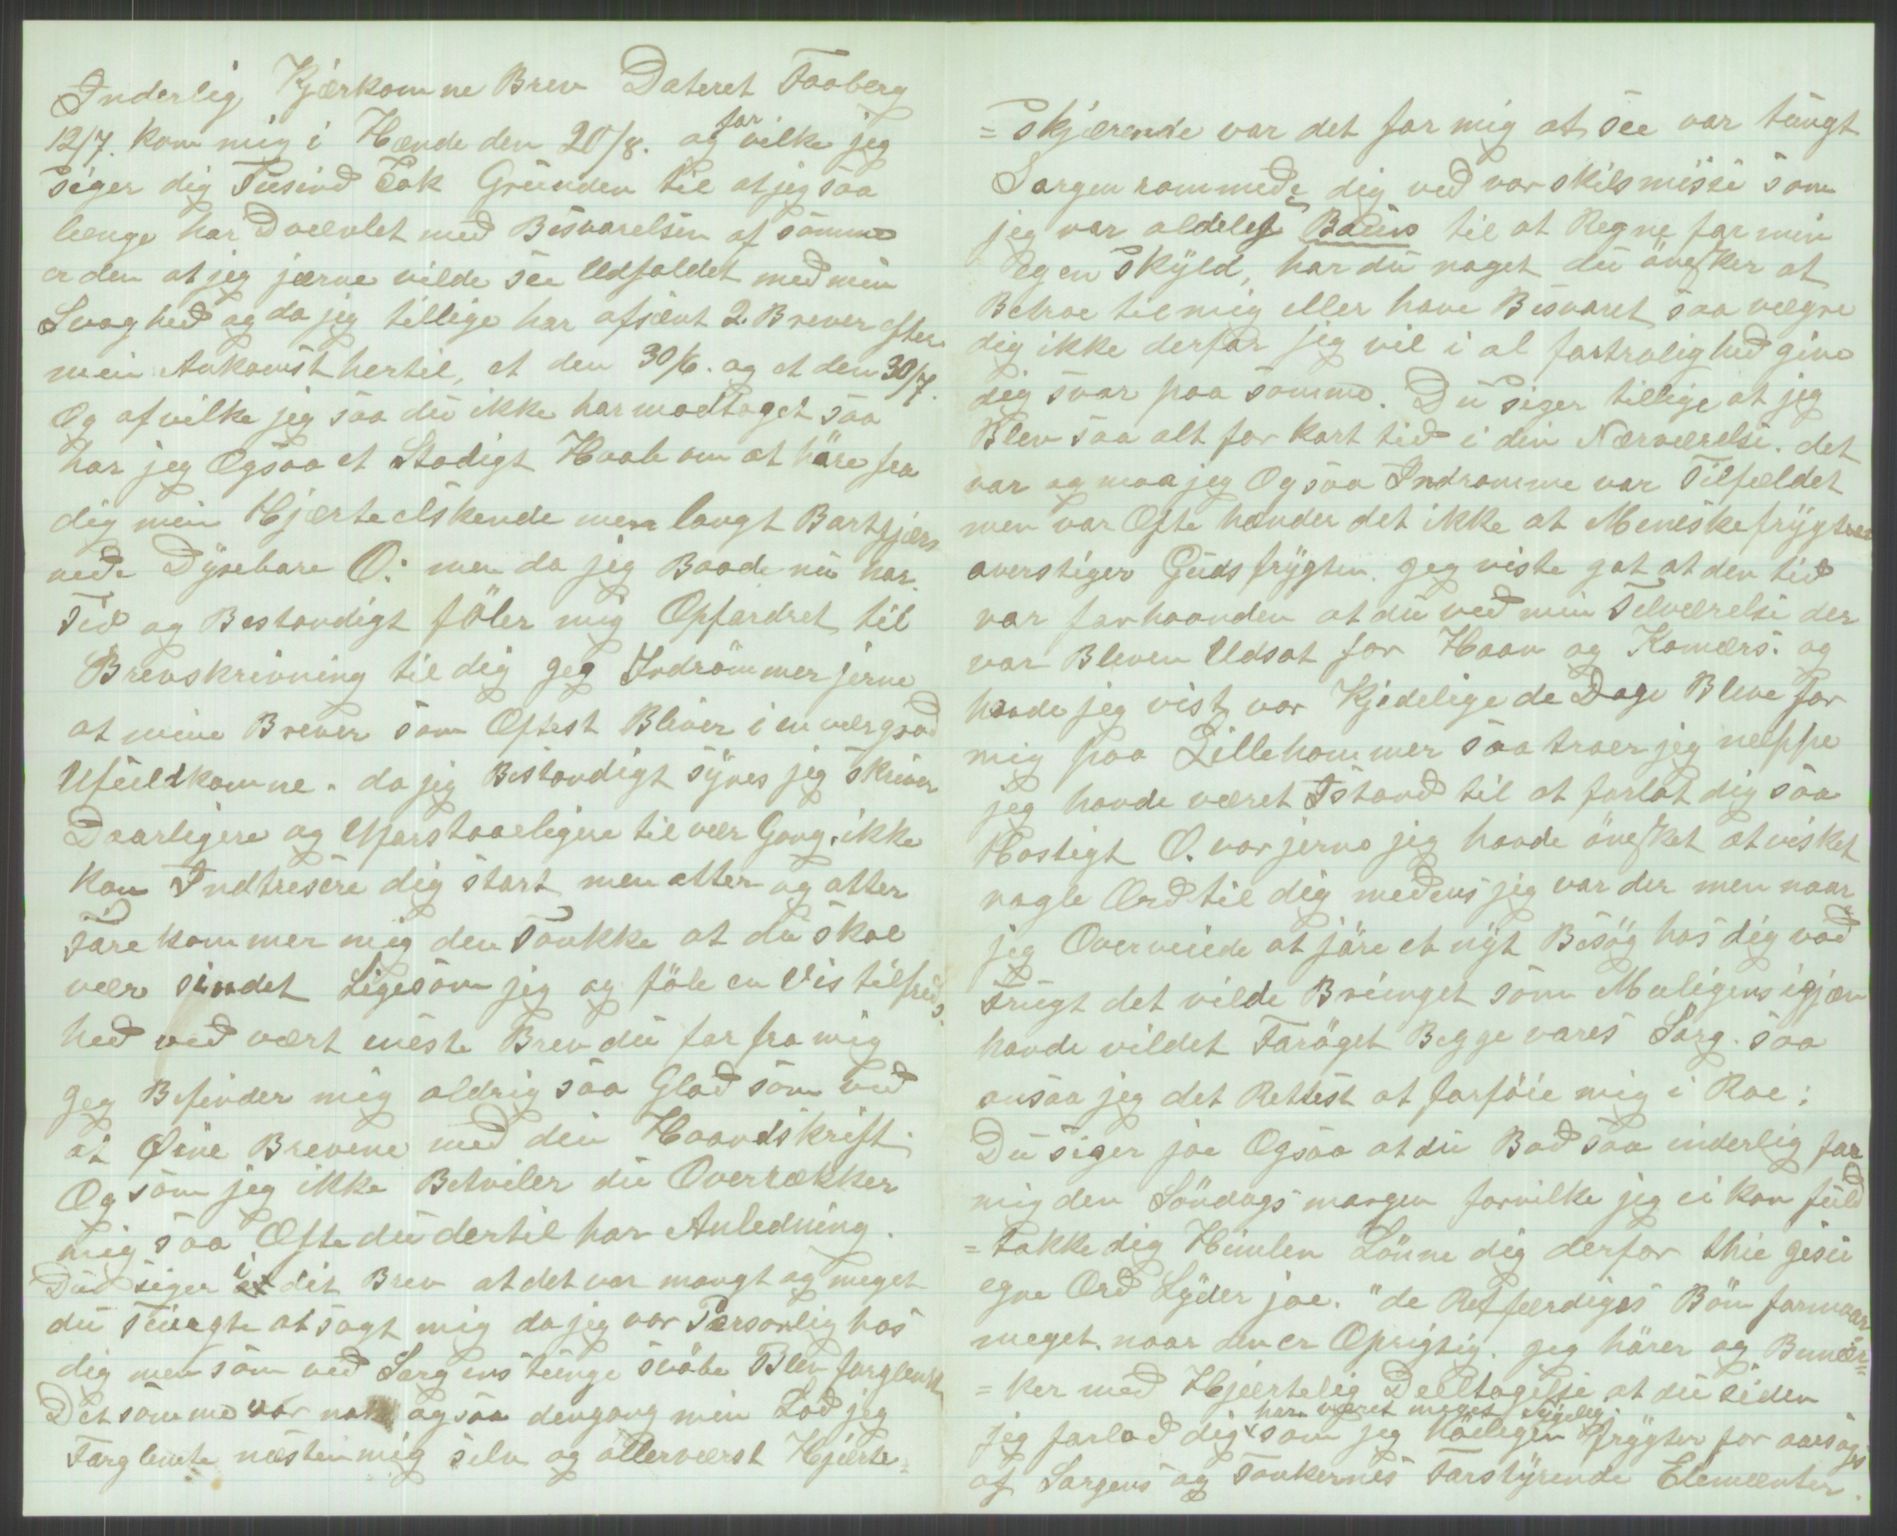 Inderlig Kjærkomne Brev Dateret Faaberg
12/7. kom mig i Hænde den 20/8. og for vilke jeg
siger dig Tusind Tak Grunden til at jeg saa
længe har Dvævlet med Besvarelsen af samme
er den at jeg jærne vilde see Udfaldet med min
Svaghed og da jeg tillige har afsænt 2 Brever efter
min Ankomst hertil, et den 30/6. og et den 30/7.
Og af vilke jeg saa du ikke har modtaget saa
har jeg Ogsaa et Stadigt Haab om at høre fra
dig min Hjærteelskende men langt Bortfjær
nede Dyrebare O: men da jeg Baade nu har
Tid og Bestandigt føler mig Opfordret til
Brevskrivning til dig jeg Indrømmer jerne
at mine Brever som Oftest Bliver i en værgrad
Ufuldkomne. da jeg Bestandigt synes jeg skriver
Daarligere og Uforstaaeligere til vær Gang. ikke
kan Indtresere dig stort men atter og atter
Fore kommer mig den Tankke at du skal
vær sindet Ligesom jeg og føle en Vis tilfreds
hed ved vært eneste Brev du far fra mig
jeg Befinder mig aldrig saa Glad som ved
at Øine Brevene med din Haandskrift.
Og som jeg ikke Betviler du Overrækker
mig saa Ofte du dertil har Anledning.
Du siger i dit Brev at det var mangt og meget
du Tængte at sagt mig da jeg var Personlig hos
dig men som ved Sorgens tunge svøbe Blev forglemt
Det samme var nok ogsaa dengang min Lod jeg
Forglemte næsten mig selv og allerværst Hjærte=
= skjærende var det for mig at see vor tungt
Sorgen rammede dig ved vor skilsmisse som
jeg var aldeles Baus til at Regne for min
egen Skyld, har du noget du ønsker at
Betroe til mig eller have Besvaret saa vægre
dig ikke derfor jeg vil i al fortrolighed give
dig svar paa samme. Du siger tillige at jeg
Blev saa alt for kort tid i din Nærværelse. det
var og maa jeg Ogsaa Indrømme var Tilfældet
men vor Ofte hænder det ikke at Meneskefrygten
overstiger Gudsfrygten. jeg viste got at den tid
var forhaanden at du ved min Tilværelse der
var Bleven Udsat for Haan og Komærs. og
havde jeg vist vor Kjedelige de Dage Bleve for
mig paa Lillehammer saa troer jeg neppe
jeg havde været Istand til at forlat dig saa
Hastigt O. vor jerne jeg havde ønsket at visket
nogle Ord til dig medens jeg var der men naar
jeg Overveiede at jøre et nyt Besøg hos dig vad
Frugt det vilde Bringet som Muligens igjæn
havde vildet Forøget Begge vores Sorg. saa
ansaa jeg det Rettest at forføie mig i Roe:
Du siger jae Ogsaa at du Bad saa inderlig for
mig den Søndags morgen forvilke jeg ei kan fuld
= takke dig Himlen Lønne dig derfor thie jesu
egne Ord Lyder jae. "de Retfærdiges Bøn formaar
meget. naar den er Oprigtig. jeg hører og Bemær=
= ker med Hjærtelig Deeltagelse at du siden
jeg forlod dig har været meget sygelig. som jeg frygter for aarsages
af Sorgens og Tankernes Forstyrende Elementer.